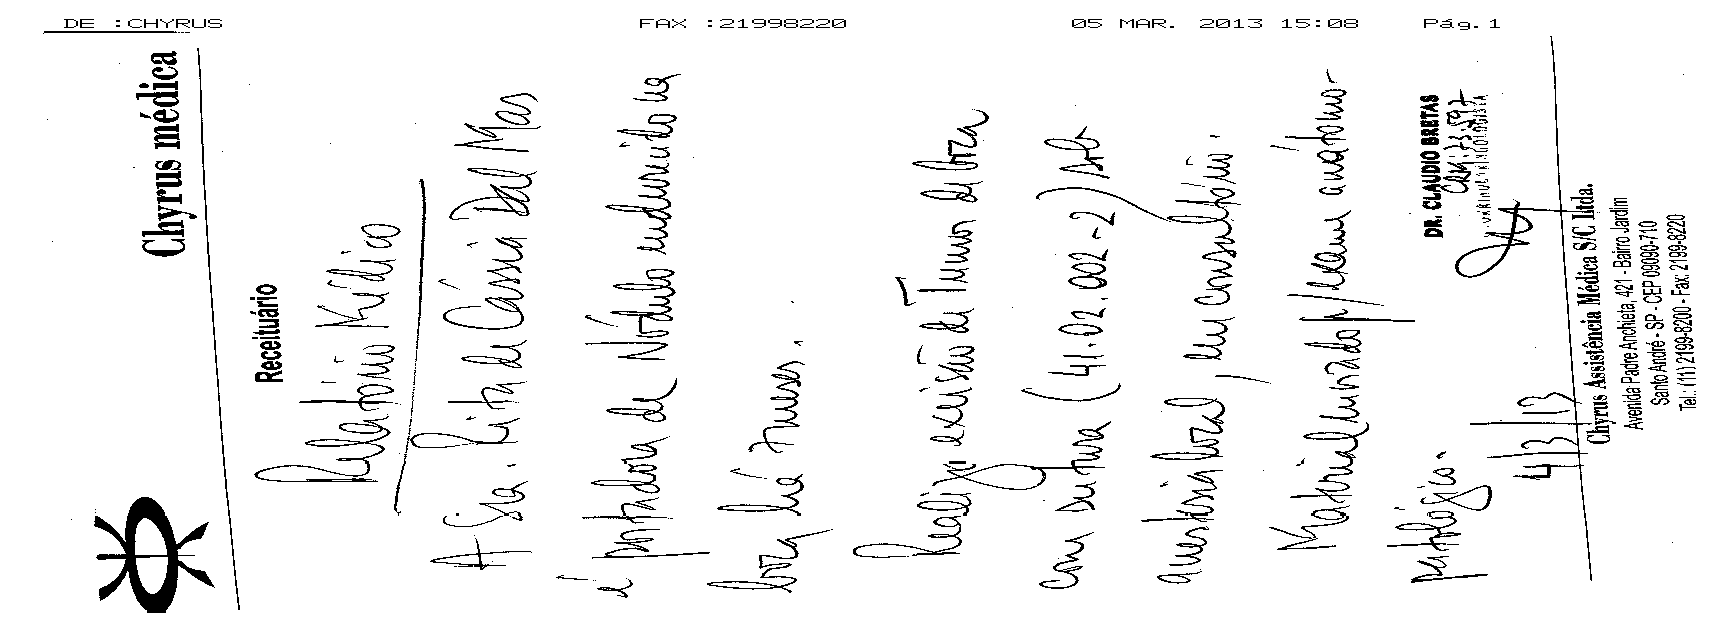 DE :CHYRUS FAX :21998220 05 MAR. 2013 15:08 Pág.1
Chyrus médica
Receituário
Relatório Médico
A Sra. Rita de Cássia Dal Mas
é portadora de Nódulo endurecido na
boca há meses.
Realizo excisão de Tumor de boca
com sutura (41.02.002-2) sob
anestesia local, em consultório.
Material enviado p/ exame anátomo-
patológico.
4/3/13
DR. CLAUDIO BRETAS
Chyrus Assistência Médica S/C ltda.
Avenida Padre Anchieta, 421 - Bairro Jardim
Santo André - SP - CEP 09090-710
Tel.: (11) 2199-8200 - Fax: 2199-8220